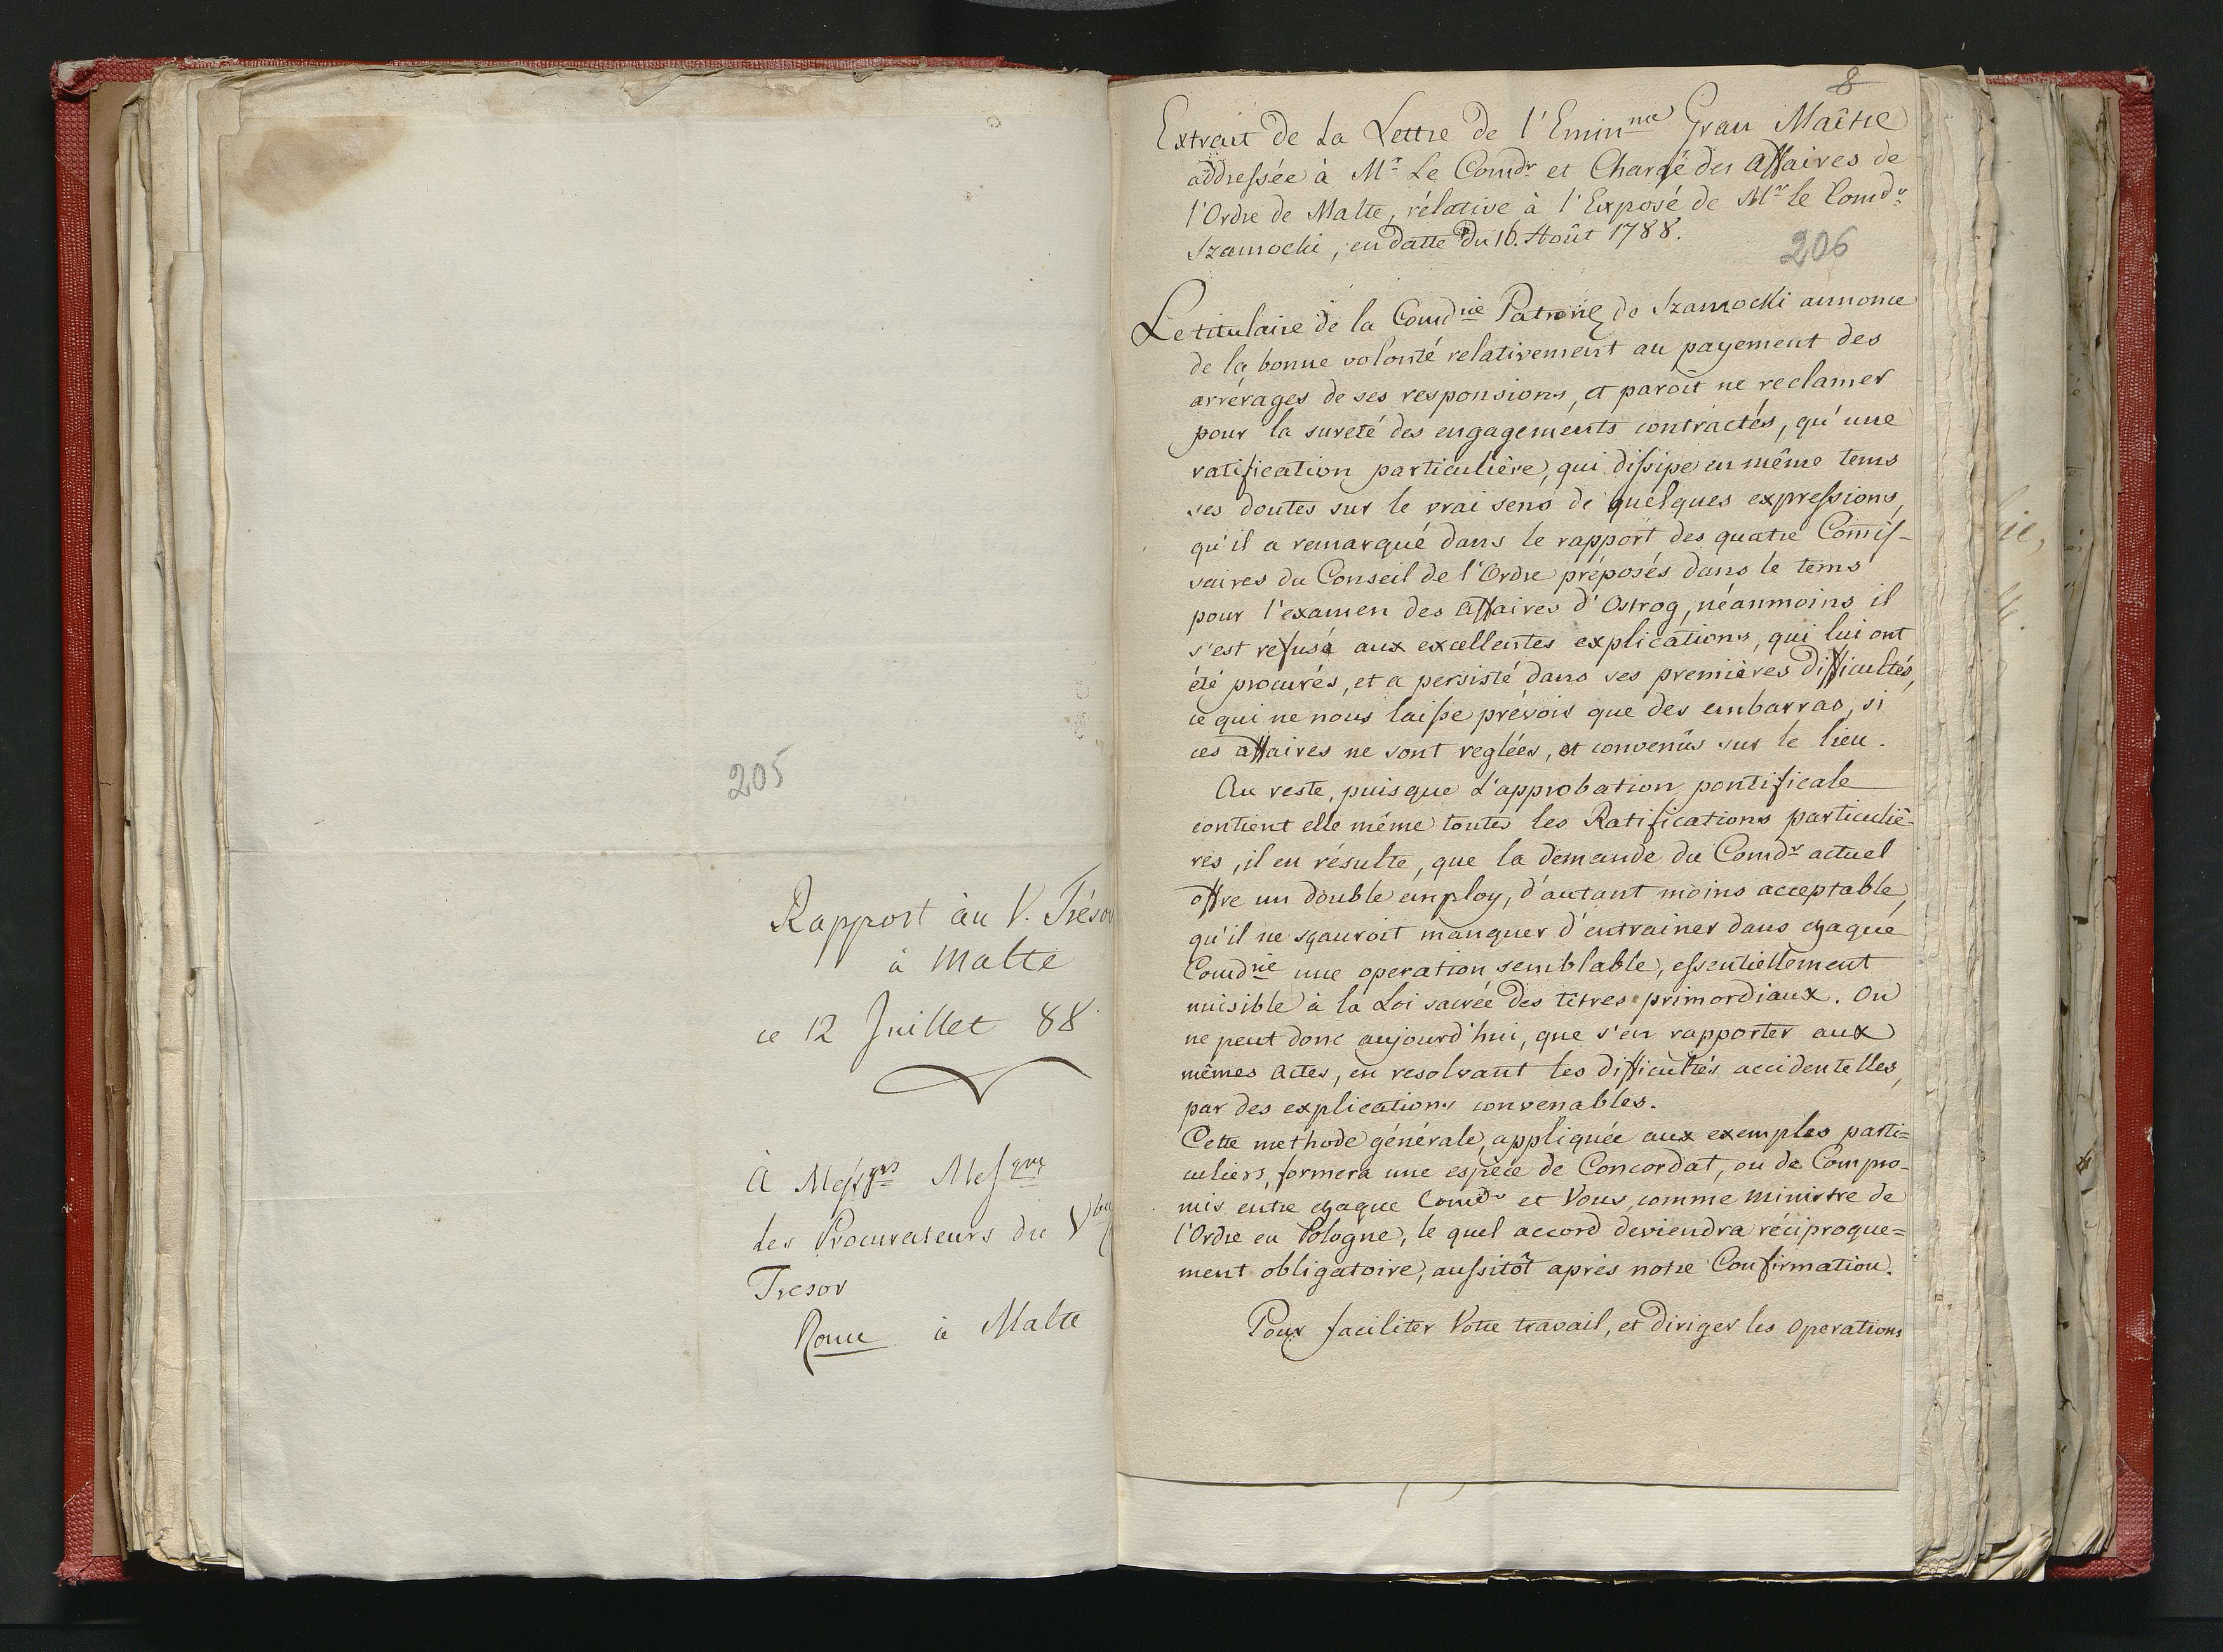 205
Rapport au V. Trésor
à Malte
ce 12 Juillet 88
A Messgrs Messgrs
les Procurateurs du Vble
Tresor
Rome à Malte
8
Extrait de La Lettre de l'Eminme Gran Maître
addressée à Mr Le Comdr et Chargé des Affaires de
l'Ordre de Malte, rélative à l'Exposé de Mr le Comdr
Szamocki, en datte du 16. Août 1788.
206
Le titulaire de la Comdrie Patronle de Szamocki annonce
de la bonne volonté relativement au payement des
arrérages de ses responsions, et paroit ne reclamer
pour la sureté des engagements contractés, qu'une
ratification particulière, qui dissipe en même tems
ses doutes sur le vrai sens de quelques expressions,
qu'il a remarqué dans le rapport des quatre Comis-
saires du Conseil de l'Ordre préposés dans le tems
pour l'examen des Affaires d'Ostrog, néanmoins il
s'est refusé aux excellentes explications, qui lui ont
été procurés, et a persisté dans ses premières difficultés,
ce qui ne nous laisse prévoir que des embarras, si
ces affaires ne sont reglées, et convenûs sur le lieu.
Au reste, puisque l'approbation pontificale
contient elle même toutes les Ratifications particuliè-
res, il en résulte, que la demande du Comdr actuel
offre un double employ, d'autant moins acceptable,
qu'il ne sçauroit manquer d'entrainer dans chaque
Comdrie une operation semblable, essentiellement
nuisible à la Loi sacrée des titres primordiaux. On
ne peut donc aujourd'hui, que s'en rapporter aux
mêmes Actes, en resolvant les difficultés accidentelles,
par des explications convenables.
Cette methode générale, appliquée aux exemples parti=
culiers, formera une espèce de Concordat, ou de Compro-
mis entre chaque Comdr et Vous, comme Ministre de
l'Ordre en Pologne, le quel accord deviendra réciproque=
ment obligatoire, aussitôt après notre Confirmation.
Pour faciliter Votre travail, et diriger les operations